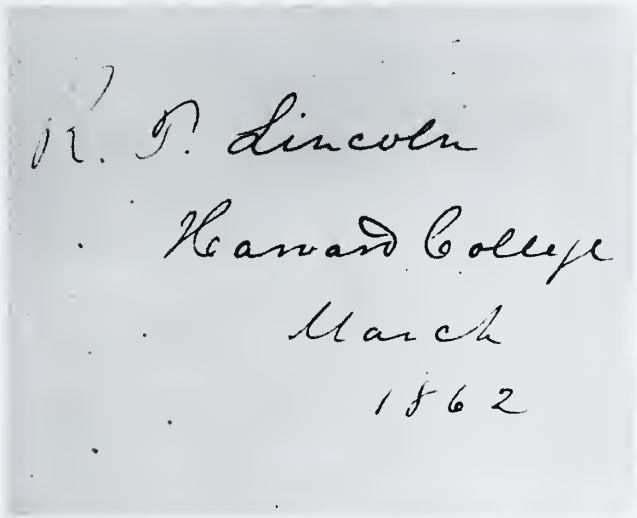 R. T. Lincoln
Harvard College
March
1862